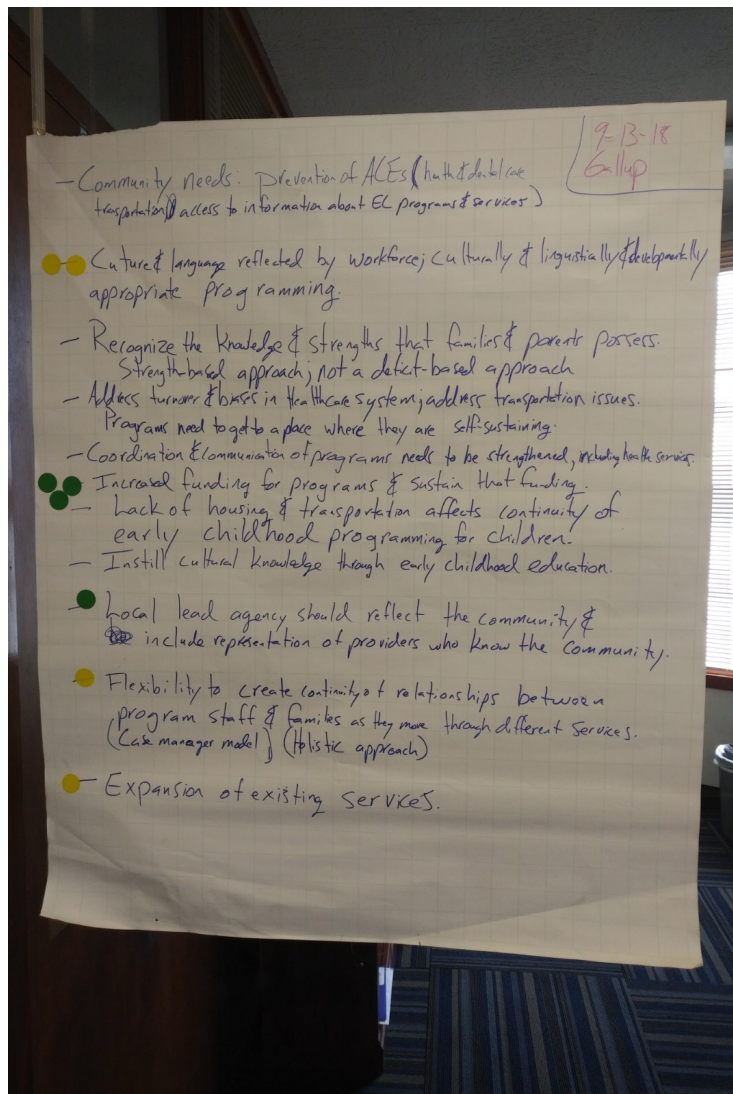 9-13-18
Gallup
- Community needs: prevention of ACEs (health & dental care
trasportation) access to information about EC programs & services)
- Cuture & language reflected by workforce; culturally & linguistically & developmentally
appropriate programming.
- Recognize the knowledge & strengths that families & parents possess.
Strength-based approach; not a deficit-based approach
- Address turnover & biases in Healthcare system; address transportation issues.
Programs need to get to a place where they are self-sustaining.
- Coordination & communication of programs needs to be strengthened, including health services.
- Increased funding for programs & sustain that funding.
- Lack of housing & transportation affects continuity of
early childhood programming for children.
- Instill cultural knowledge through early childhood education.
- Local lead agency should reflect the community &
include representation of providers who know the community.
- Flexibility to create continuity of relationships between
program staff & families as they move through different services.
(Case manager model) (Holistic approach)
- Expansion of existing services.